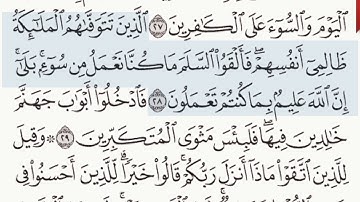 ٱلۡيَوۡمَ وَٱلسُّوٓءَ عَلَى ٱلۡكَٰفِرِينَ ٢٧ ٱلَّذِينَ تَتَوَفَّىٰهُمُ ٱلۡمَلَٰٓئِكَةُ
ظَالِمِيٓ أَنفُسِهِمۡۖ فَأَلۡقَوُاْ ٱلسَّلَمَ مَا كُنَّا نَعۡمَلُ مِن سُوٓءِۭۚ بَلَىٰٓۚ
إِنَّ ٱللَّهَ عَلِيمُۢ بِمَا كُنتُمۡ تَعۡمَلُونَ ٢٨ فَٱدۡخُلُوٓاْ أَبۡوَٰبَ جَهَنَّمَ
خَٰلِدِينَ فِيهَاۖ فَلَبِئۡسَ مَثۡوَى ٱلۡمُتَكَبِّرِينَ ٢٩ ۞ وَقِيلَ
لِلَّذِينَ ٱتَّقَوۡاْ مَاذَآ أَنزَلَ رَبُّكُمۡۚ قَالُواْ خَيۡرٗاۗ لِّلَّذِينَ أَحۡسَنُواْ فِي